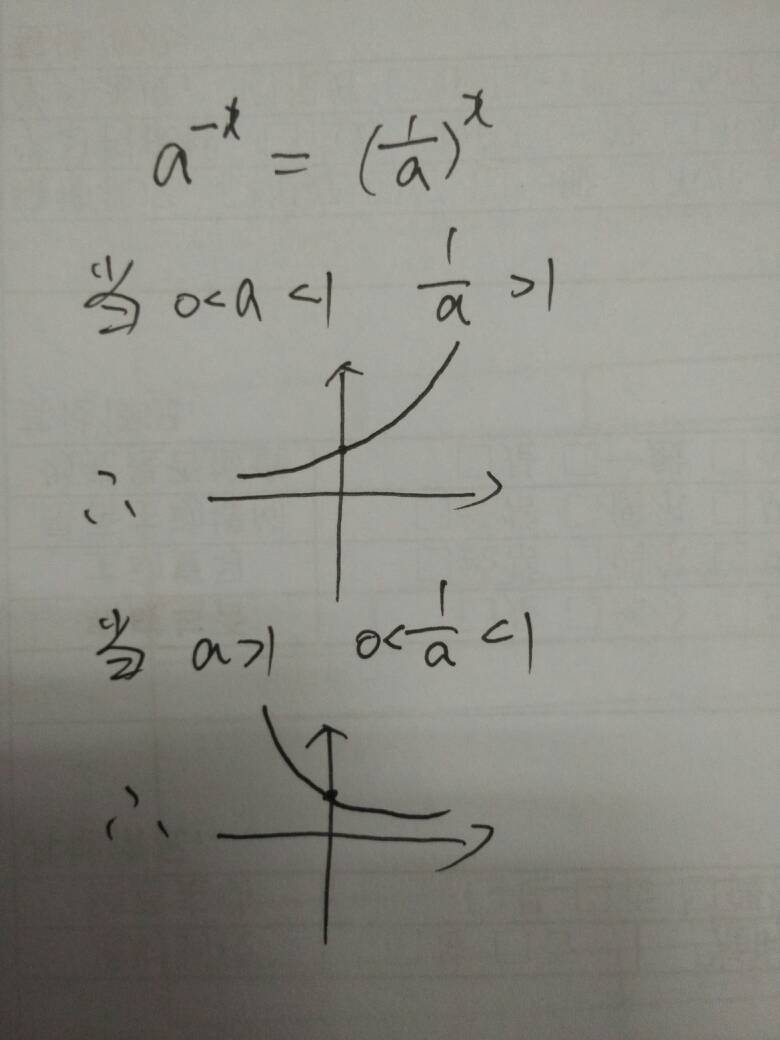 a^{-x} = (\frac{1}{a})^x
当 0<a<1 \frac{1}{a} >1
∴
当 a>1 0<\frac{1}{a}<1
∴